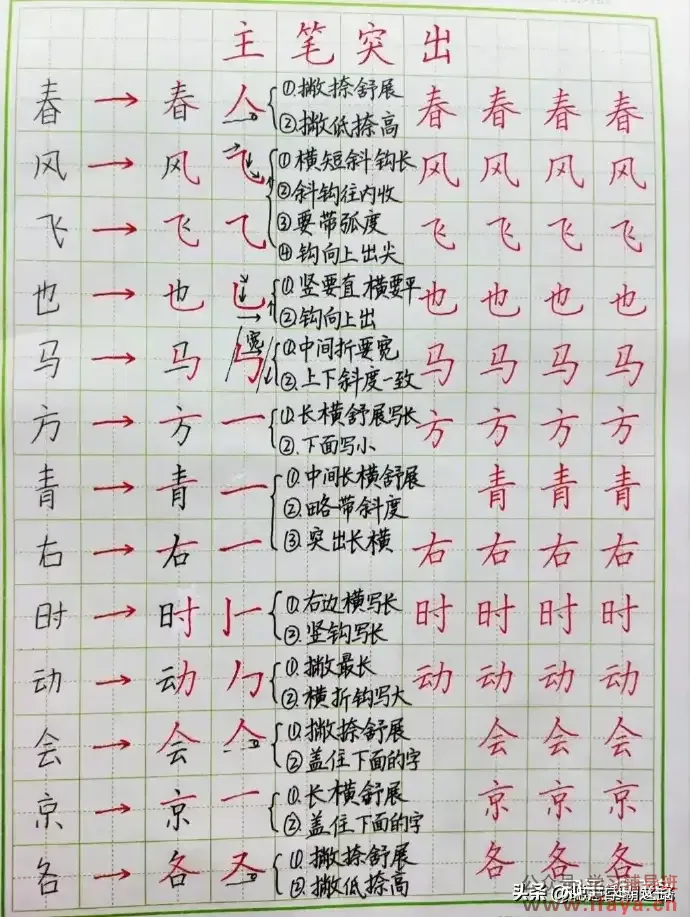 主笔突出
春 → 春 人 ①.撇捺舒展 春 春 春 春
②.撇低捺高
风 → 风 ⺄ ①横短斜钩长 风 风 风 风
②斜钩往内收
飞 → 飞 ⺄ ③要带弧度 飞 飞 飞 飞
④钩向上出尖
也 → 也 乚 ①.竖要直横要平 也 也 也 也
②钩向上出
马 → 马 宽 ①.中间折要宽 马 马 马 马
②.上下斜度一致
方 → 方 一 ①.长横舒展写长 方 方 方 方
②.下面写小
青 → 青 一 ①.中间长横舒展 青 青 青
②.略带斜度
右 → 右 一 ③.突出长横 右 右 右 右
时 → 时 ①.右边横写长 时 时 时 时
②.竖钩写长
动 → 动 ①.撇最长 动 动 动 动
②横折钩写大
会 → 会 人 ①.撇捺舒展 会 会 会
②盖住下面的字
京 → 京 一 ①.长横舒展 京 京 京
②.盖住下面的字
各 → 各 又 ①.撇捺舒展 各 各 各
②.撇低捺高
头条